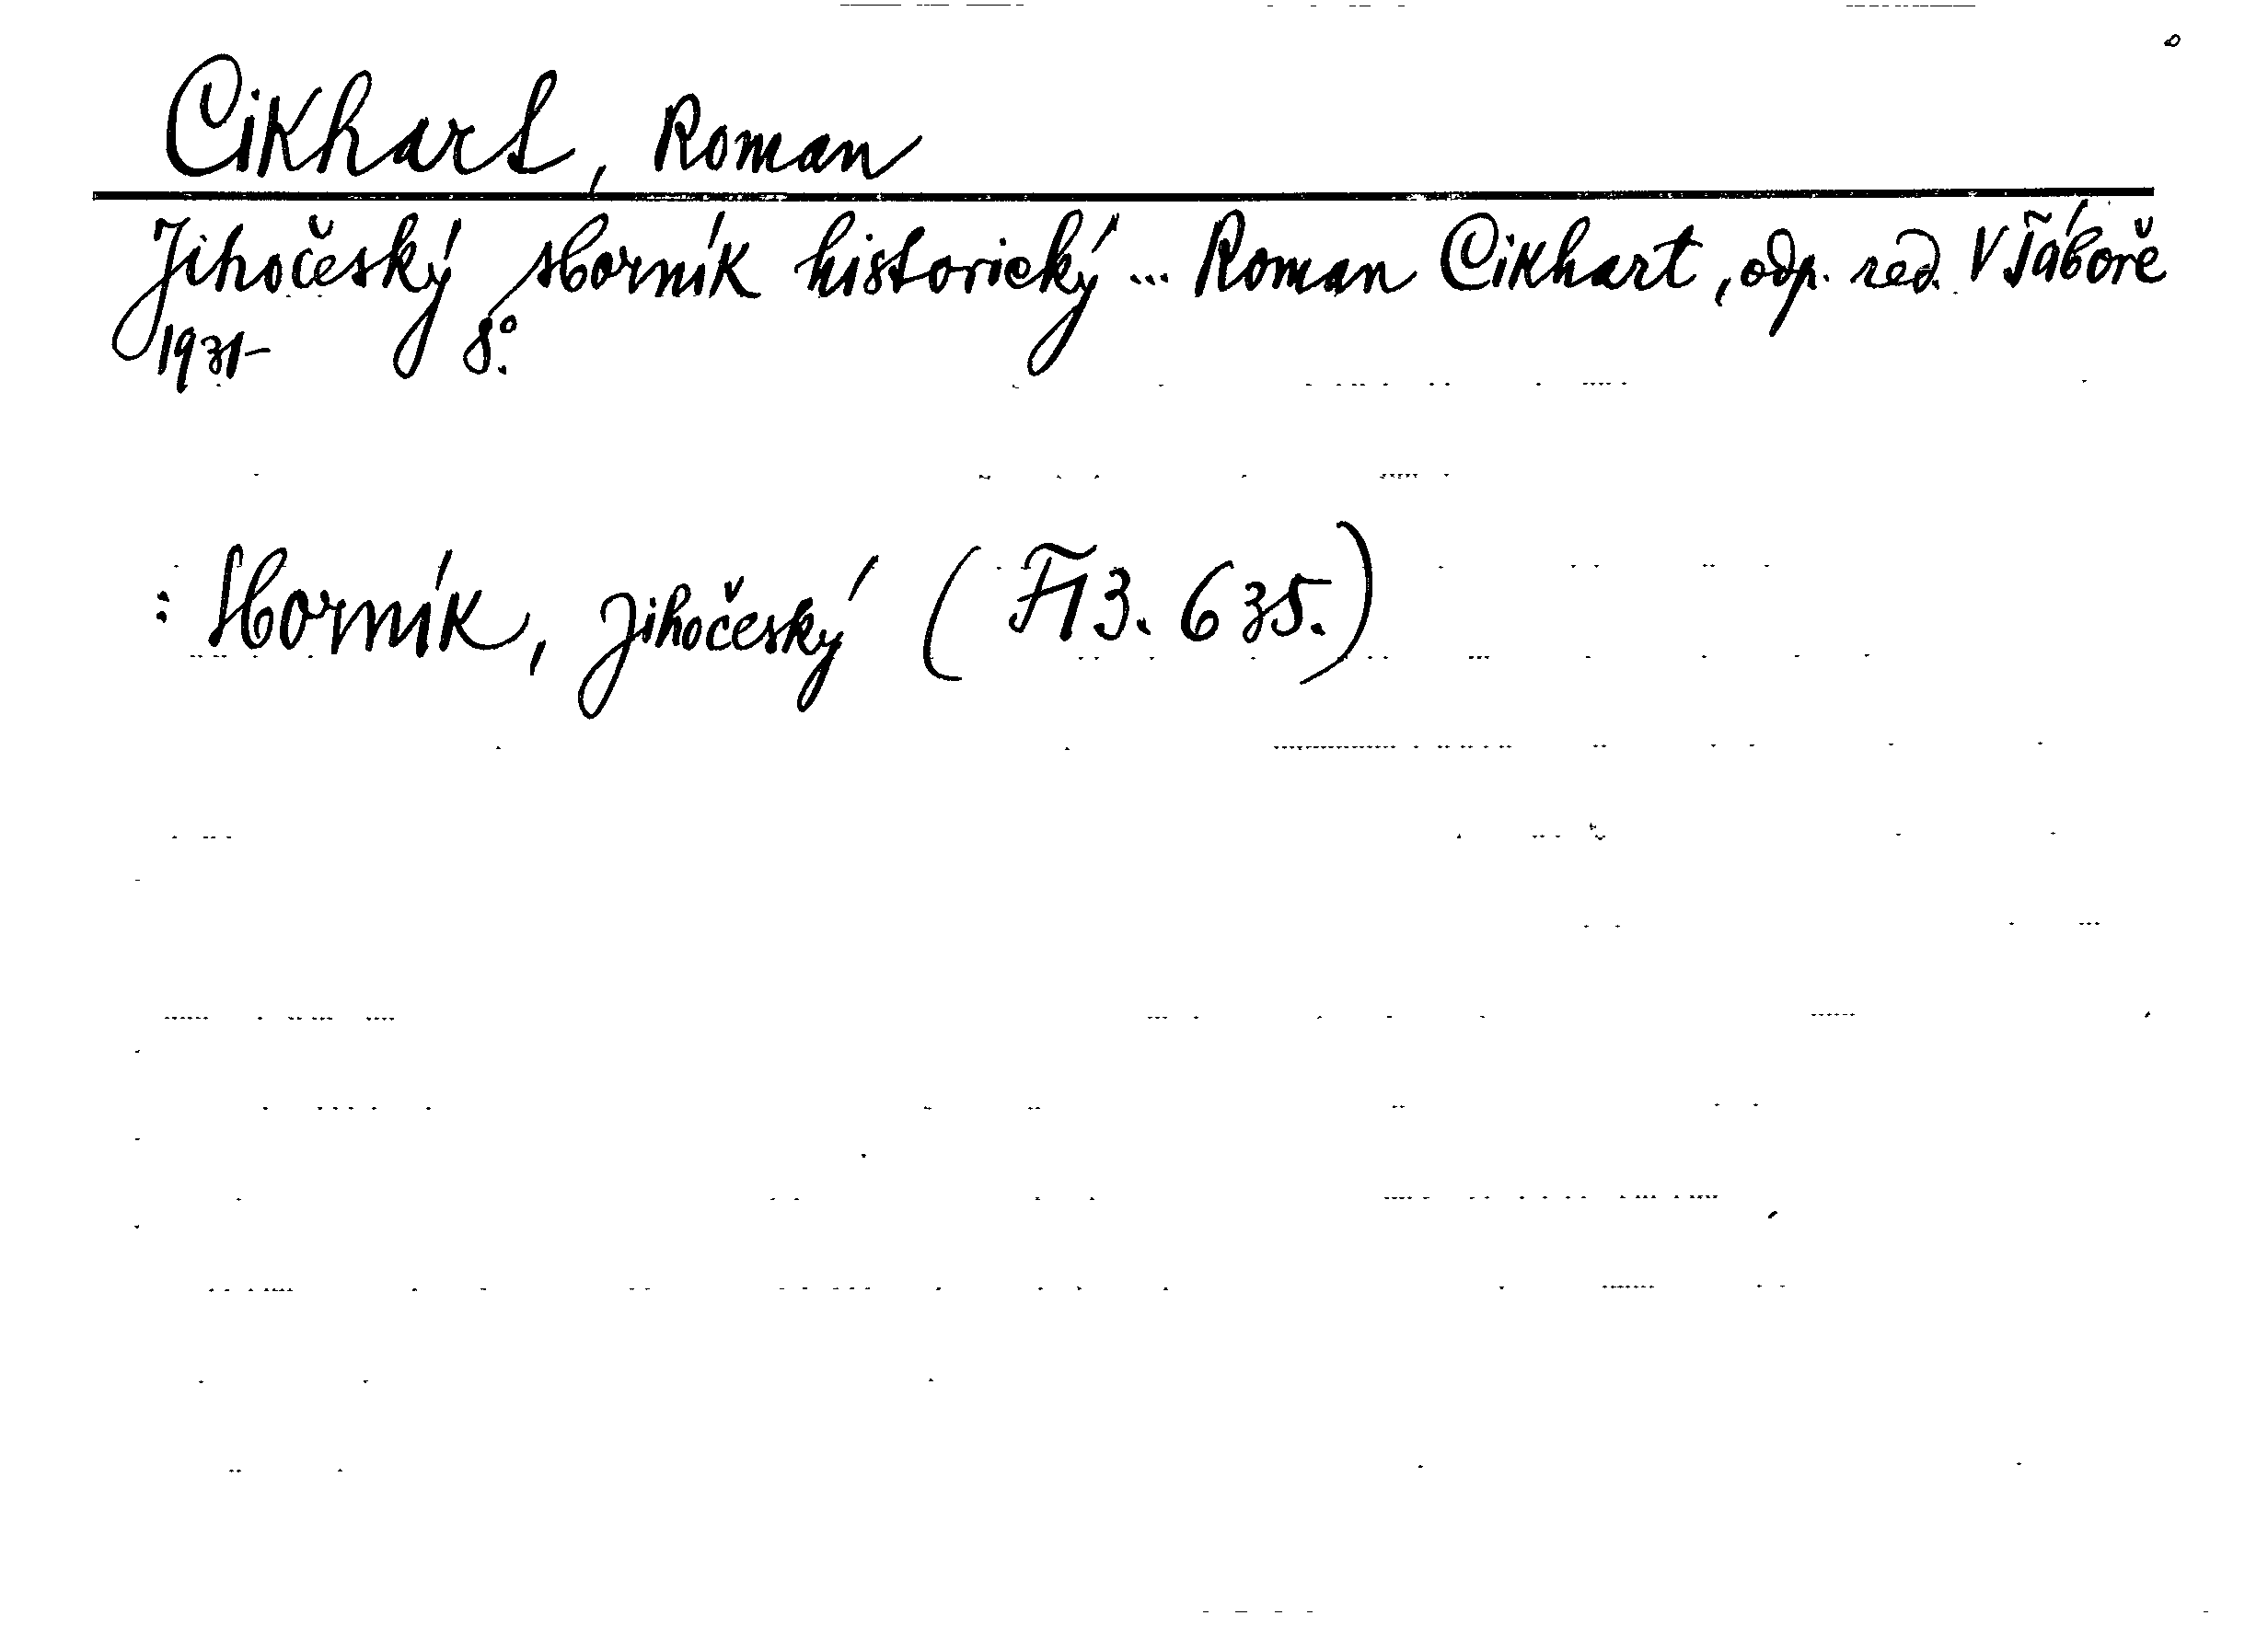 Cikhart, Roman
Jihočeský sborník historický ... Roman Cikhart, odp. red. V Táboře
1931- 8°.
: Sborník, Jihočeský (F13.635.)